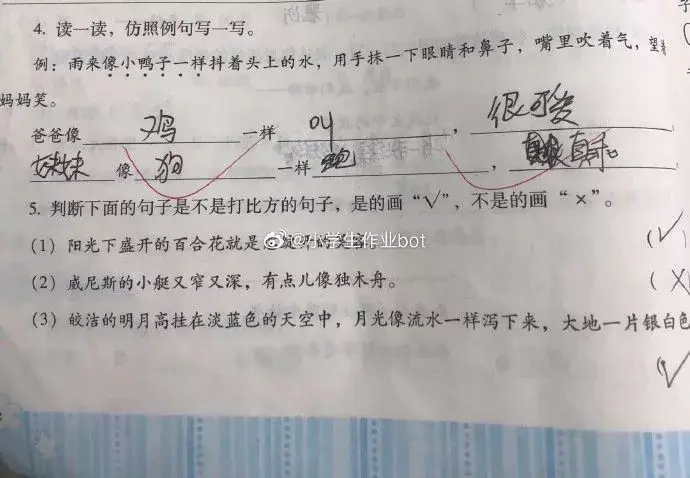 4. 读一读，仿照例句写一写。
例：雨来像小鸭子一样抖着头上的水，用手抹一下眼睛和鼻子，嘴里吹着气，望着
妈妈笑。
爸爸像 鸡 一样 叫 ， 很可爱
妹妹 像 狗 一样 跑 ， 真 。
5. 判断下面的句子是不是打比方的句子，是的画“√”，不是的画“×”。
@小学生作业bot
（1）阳光下盛开的百合花就是 （√
（2）威尼斯的小艇又窄又深，有点儿像独木舟。 （×
（3）皎洁的明月高挂在淡蓝色的天空中，月光像流水一样泻下来，大地一片银白色
（√